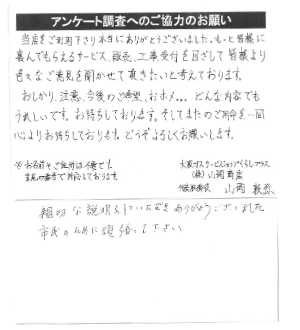 アンケート調査へのご協力のお願い
当店をご利用下さり本当にありがとうございました。もっと皆様に
喜んでもらえるサービス、販売、工事受付を目ざして皆様より
色々なご意見を聞かせて頂きたいと考えております。
おしかり、注意、今後のご希望、おホメ…どんな内容でも
うれしいです。お待ちしております。そしてまたのご用命を一同
心よりお待ちしております。どうぞよろしくお願いします。
※お名前、ご住所は不要です。
大阪ガスサービスショップくらしプラス
(株)山岡商店
山岡
説明をしていただきありがとうございました
市民の為に頑張って下さい